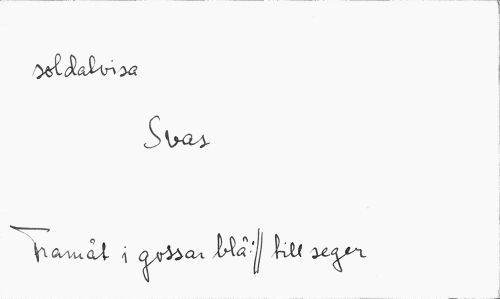 soldatvisa
Svas
Framåt i gossar blå :// till seger